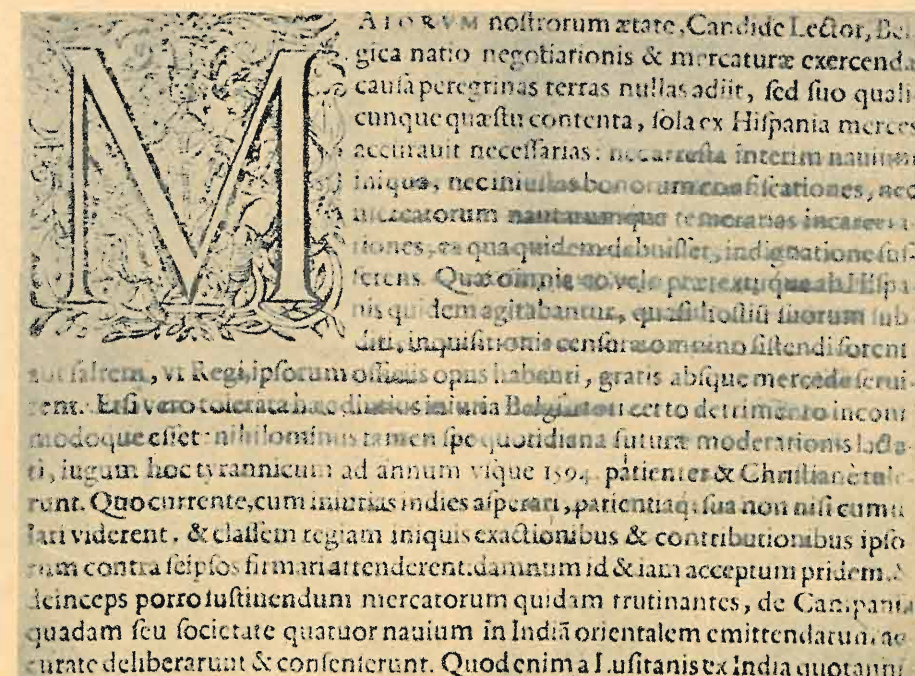 MAIORVM noſtrorum ætate, Candide Lector, Bel
gica natio negotiationis & mercaturæ exercenda
cauſa peregrinas terras nullas adiit, ſed ſuo quali
cunque quæſtu contenta, ſola ex Hiſpania merces
accurauit neceſſarias: nec arreſta interim nauium
iniqua, nec iniuſtas bonorum confiſcationes, nec
mercatorum nautarumque temerarias incarcera
tiones, ea qua quidem debuiſſet, indignatione ſuf-
ferens. Quæ omnia eo velo prætextuque ab Hiſpa
nis quidem agitabantur, quaſi hoſtiũ ſuorum ſub
diti, inquiſitionis cenſura omnino ſiſtendi forent
aut ſaltem, vt Regi, ipſorum officiis opus habenti, gratis abſque mercede ſerui-
rent. Etſi vero tolerata hæc diutius iniuria certo detrimento incom
modoque eſſet: nihilominus tamen ſpe quotidiana futuræ moderationis lacta-
ti, iugum hoc tyrannicum ad annum vſque 1594. patienter & Chriſtianè tule
runt. Quo currente, cum iniurias indies aſperari, patientiaq; ſua non niſi cumu
lari viderent, & claſſem regiam iniquis exactionibus & contributionibus ipſo
rum contra ſeipſos firmari attenderent: damnum id & iam acceptum pridem, &
deinceps porro ſuſtinendum mercatorum quidam trutinantes, de Campania
quadam ſeu ſocietate quatuor nauium in Indiã orientalem emittendarum, ac
curate deliberarunt & conſenſerunt. Quod enim a Luſitanis ex India quotannis